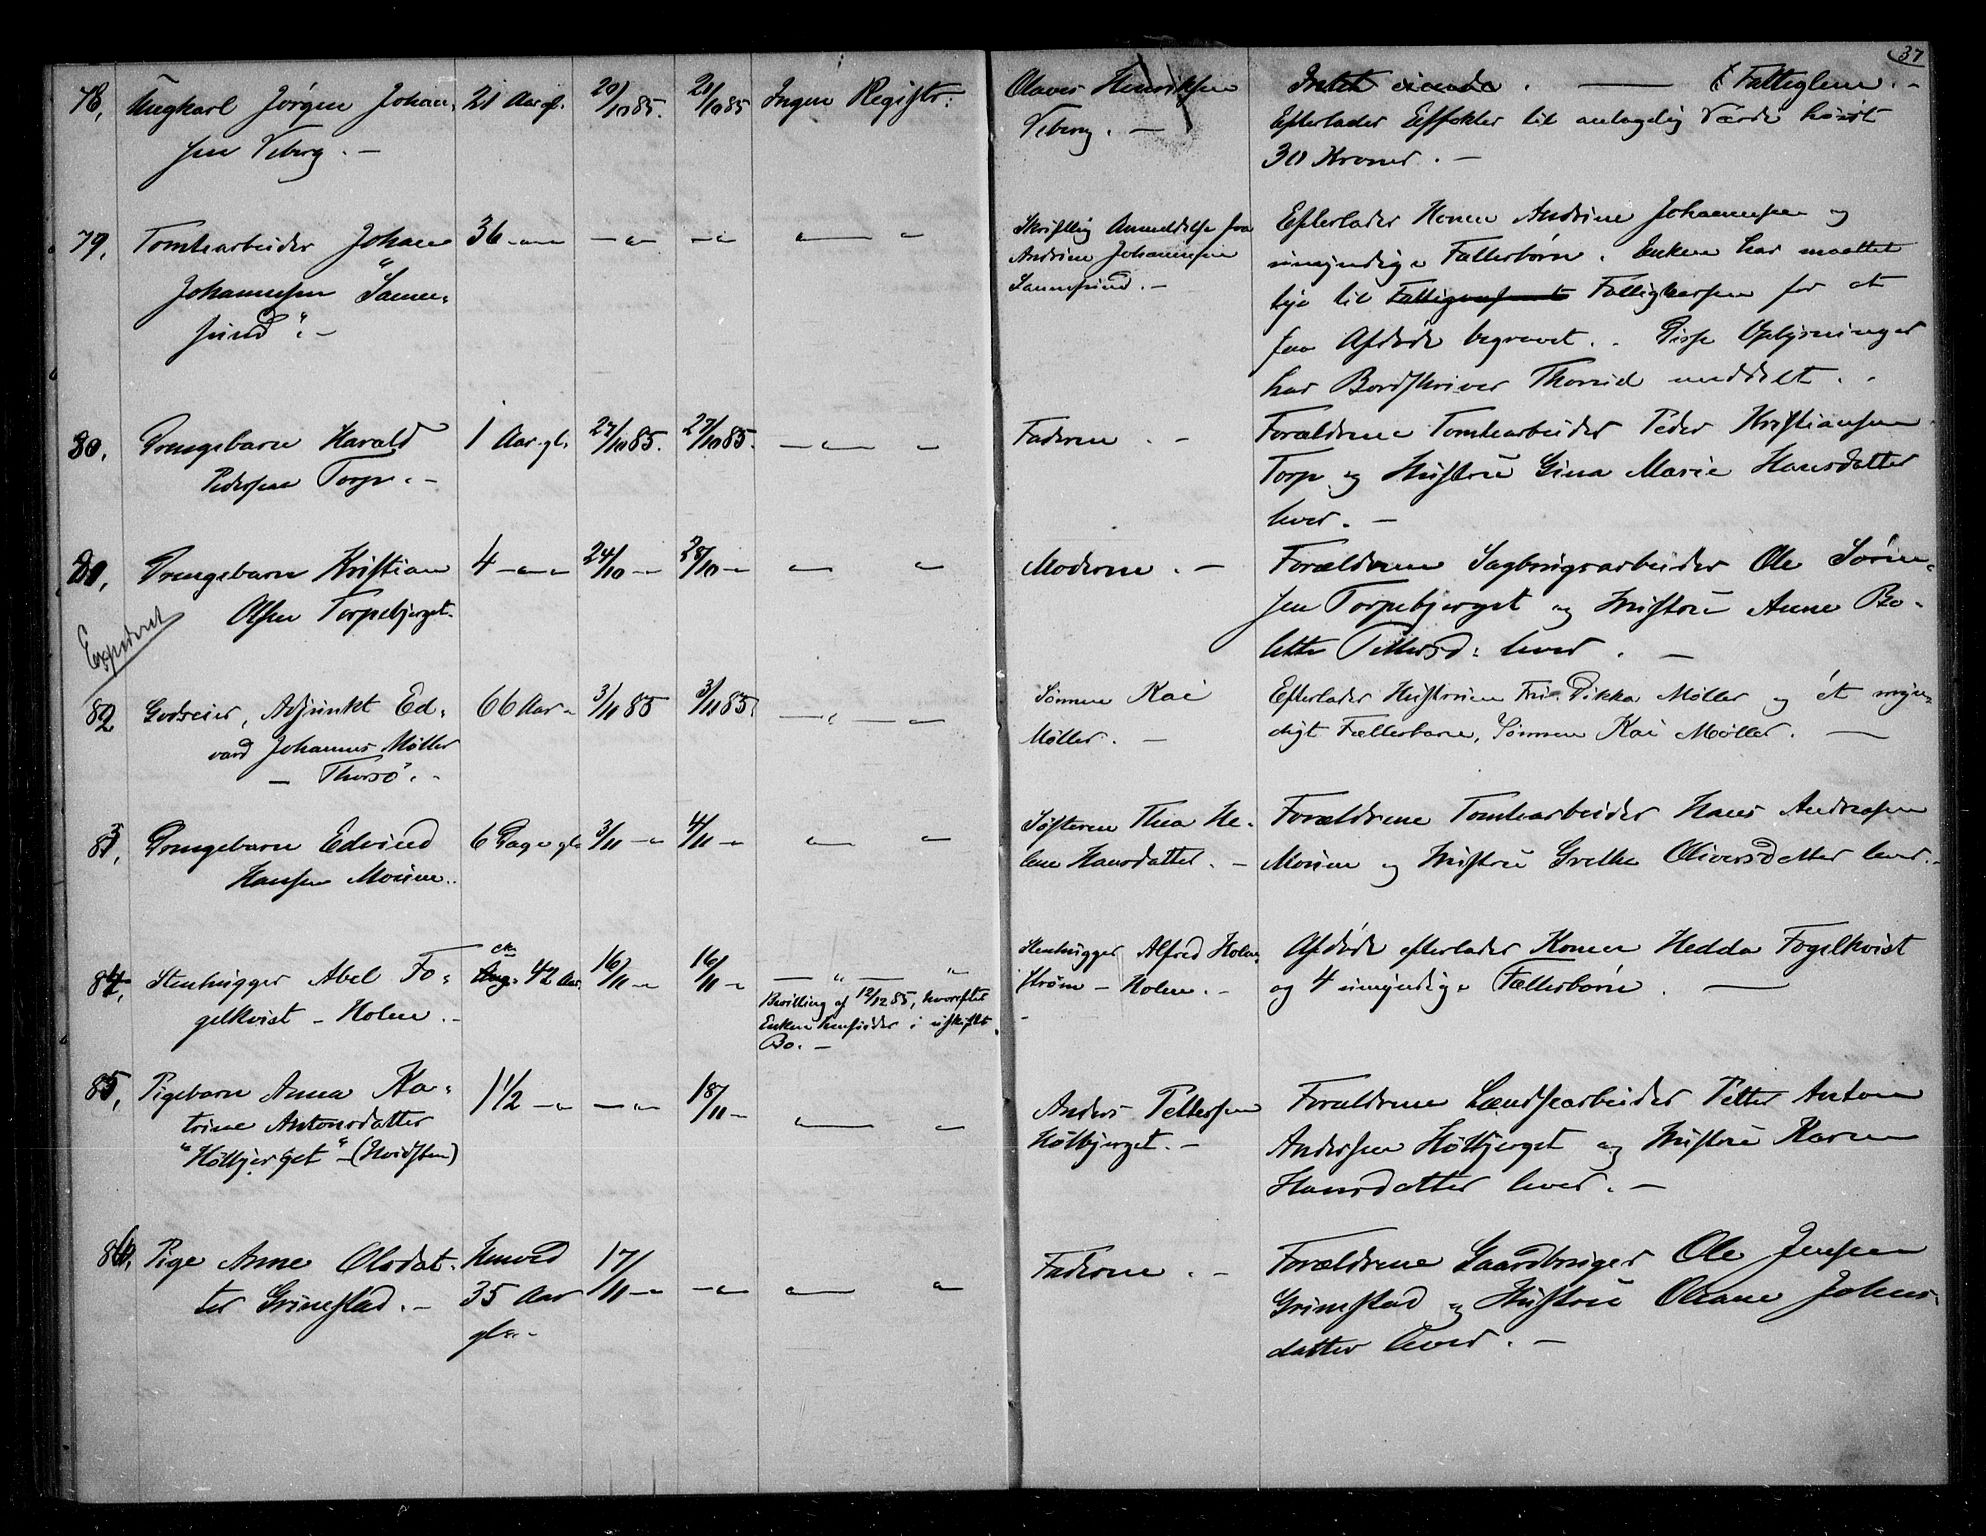 37
78, Ungkarl Jörgen Johan- 21 Aar gl. 20/10 85. 21/10 85 Ingen Registr: Olaves Henriksen Intet eiende . — Fattiglem. -
sen Viberg. - Viberg. - Efterlader Effekter til antagelig Værdi høist
30 Kroner. -
79, Tomtearbeider Johan 36 - " - - " - - " - " " Skriftlig Anmeldelse fra Efterlader Konen Andrine Johannesen og
Johannesen "Sann- Andrine Johannesen umyndige Fællesbørn. Enken har maattet
sund". - Sannesund. - tye til Fattigkassen for at
faa Afdøde begravet. . Disse Oplysninger
har Bordskriver Thorud meddelt. .
80, Drengebarn Harald 1 Aar gl. 27/10 85. 27/10 85. - " - " Faderen . - Forældrene Tomtearbeider Peder Kristiansen
Pedersen Torp. - Torp og Hustru Gina Marie Hansdatter
lever. -
81, Drengebarn Kristian 4 - " - 24/10 - " 28/10 - " " " Moderen . - Forældrene Sagbrugsarbeider Ole Sørn-
Olsen Torpebjerget - sen Torpebjerget og Hustru Anne Bo-
Expederet lette Pettersd: lever . -
82 Godseier, Adjunkt Ed- 66 Aar " 3/11 85 3/11 85. - " - " Sønnen Kai Efterlader Hustruen Fru Dikka Møller og ét myn-
vard Johannes Møller Møller. - digt Fællesbarn, Sønnen Kai Møller. —
- Thorsö. -
83, Drengebarn Edvind 6 Dage gl. 3/11 - " 4/11 - " " " Søsteren Thea He- Forældrene Tomtearbeider Hans Andreasen
Hansen Moum.. lene Hansdatter. - Moum og Hustru Grethe Oliversdatter lever. -
84, Stenhugger Abel Fo- 42 Aar 16/11 - " 16/11 - " - " - " Stenhugger Alfred Holm- Afdøde efterlader Konen Hedda Fogelkvist
gelkvist - Holm. - Bevilling af 12/12 85, hvorefter strøm - Holm. - og 4 umyndige Fællesbørn . —
Enken hensidder i uskiftet
Bo. -
85, Pigebarn Anna Ka- 1 1/2 - " - " 18/11 - " " Anders Pettersen Forældrene Landsearbeider Petter Anton
trine Antonsdatter Hölbjerget. - Andersen Hölbjerget og Hustru Karen
"Hölbjerget" - (Hvidsten) Hansdatter lever. -
86, Pige Anne Olsdat- Henved 17/11 - " - " " " Faderen . - Forældrene Gaardbruger Ole Jensen
ter Grimstad. - 35 Aar Grimstad og Hustru Oleane Johns-
gl. - datter lever. -